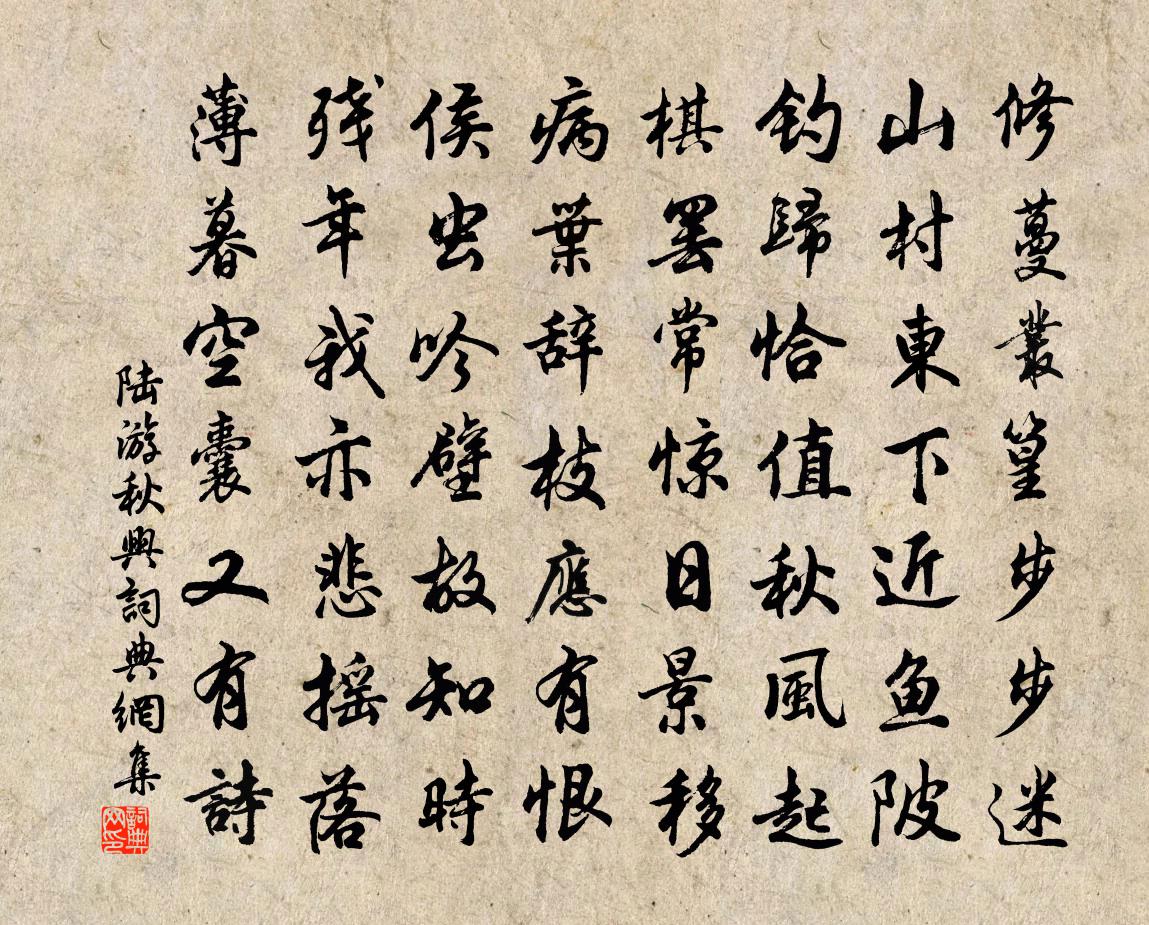 修蔓叢篁步步迷
山村東下近鱼陂
钓歸恰值秋風起
棋罢常惊日景移
病葉辞枝應有恨
侯虫吟壁故知時
残年我亦悲摇落
薄暮空囊又有詩
陆游秋興詞典網集
詞典网印